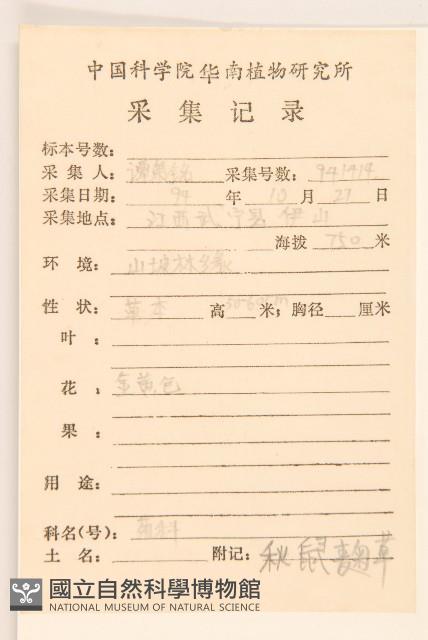 中国科学院华南植物研究所
采集记录
标本号数:
采集人: 谭策铭 采集号数: 941414
采集日期: 94 年 10 月 27 日
采集地点: 江西武宁县伊山
海拨 750 米
环境: 山坡林缘
性状: 草本 高 50-60cm 米; 胸径 厘米
叶:
花: 金黄色
果:
用途:
科名(号): 菊科
土名: 附记: 秋鼠麴草
國立自然科學博物館
NATIONAL MUSEUM OF NATURAL SCIENCE